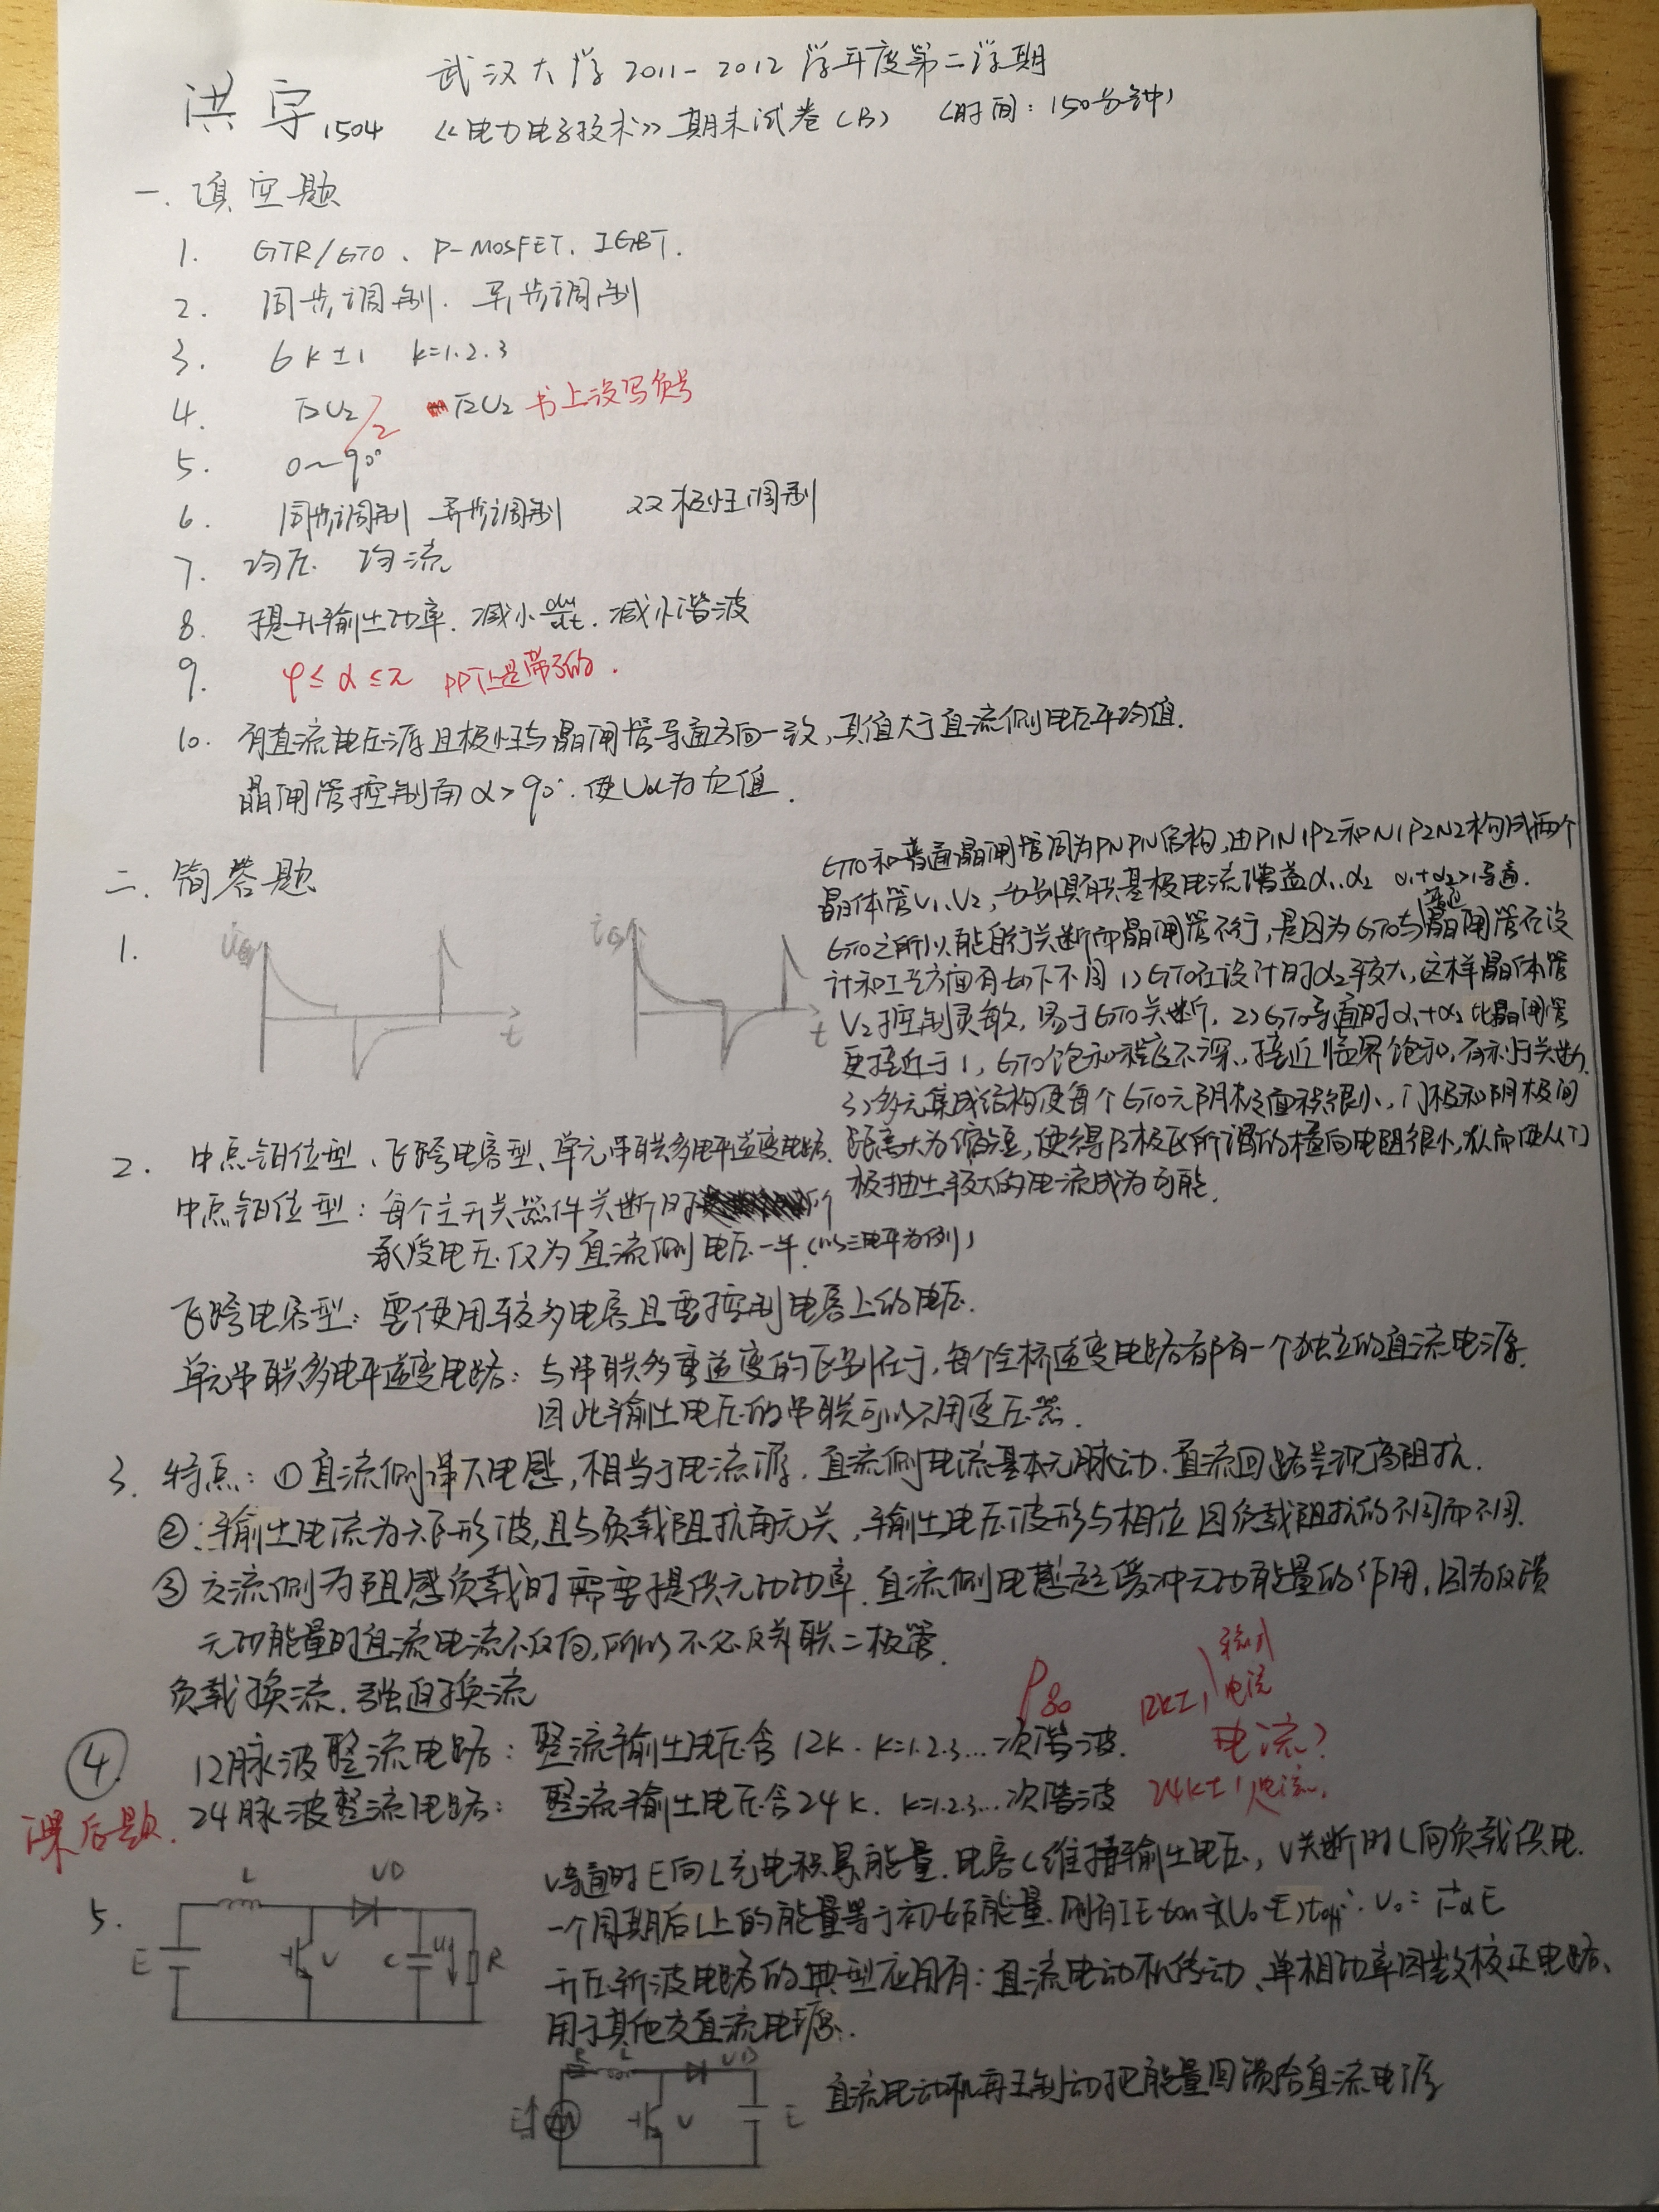 武汉大学 2011-2012 学年度第二学期
洪宇 1504 《电力电子技术》期末试卷(B) (时间:150分钟)
一. 填空题
1. GTR/GTO、P-MOSFET、IGBT.
2. 同步调制. 异步调制
3. 6k±1 k=1.2.3
4. √2U₂/2 √2U₂ 书上没写负号
5. 0~90°
6. 同步调制 异步调制 双极性调制
7. 均压. 均流
8. 提升输出功率. 减小 du/dt. 减小谐波
9. φ≤α≤π PPT上是带了的.
10. 有直流电压源且极性与晶闸管导通方向一致,其值大于直流侧电压平均值.
晶闸管控制角α>90°.使Ud为负值.
二. 简答题
1. iG t iG t
GTO和普通晶闸管同为PNPN结构,由P1N1P2和N1P2N2构成两个
晶体管V1、V2,分别具有共基极电流增益α1、α2 α1+α2>1导通.
GTO之所以能自行关断而晶闸管不行,是因为GTO与普通晶闸管在设
计和工艺方面有如下不同 1)GTO在设计时α2较大,这样晶体管
V2控制灵敏,易于GTO关断. 2)GTO导通时α1+α2比晶闸管
更接近于1,GTO饱和程度不深,接近临界饱和,有利于关断.
3)多元集成结构使每个GTO元阴极面积很小,门极和阴极间
距离大为缩短,使得P2极区所谓的横向电阻很小,从而使从门
极抽出较大的电流成为可能.
2. 中点钳位型、飞跨电容型、单元串联多电平逆变电路.
中点钳位型:每个主开关器件关断时所
承受电压仅为直流侧电压一半.(以三电平为例)
飞跨电容型:要使用较多电容且要控制电容上的电压.
单元串联多电平逆变电路:与串联多重逆变的区别在于,每个全桥逆变电路都有一个独立的直流电源.
因此输出电压的串联可以不用变压器.
3. 特点:①直流侧串大电感,相当于电流源.直流侧电流基本无脉动.直流回路呈现高阻抗.
②:输出电流为矩形波,且与负载阻抗角无关,输出电压波形与相位因负载阻抗的不同而不同.
③交流侧为阻感负载时需要提供无功功率.直流侧电感起缓冲无功能量的作用,因为反馈
无功能量时直流电流不反向,所以不必反并联二极管.
负载换流. 强迫换流
④ 12脉波整流电路:整流输出电压含12k. k=1.2.3...次谐波. P80 12k±1 输入电流 电流?
课后题. 24脉波整流电路:整流输出电压含24k. k=1.2.3...次谐波 24k±1 电流.
5. L VD E V C U R
V导通时E向L充电积累能量.电容C维持输出电压,V关断时L向负载供电.
一个周期后L上的能量等于初始能量.则有IE ton=I(U₀-E)toff. U₀=1/(1-α) E
升压斩波电路的典型应用有:直流电动机传动、单相功率因数校正电路、
用于其他交直流电源.
R L VD M V E
直流电动机再生制动把能量回馈给直流电源